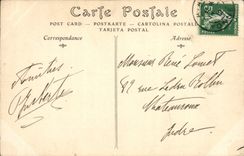 Carte Postale
POST CARD - POSTKARTE - CARTOLINA POSTALE
TARJETA POSTAL
Correspondance
Adresse
Monsieur René
82 rue Ledru Rollin
Chateauroux
Indre